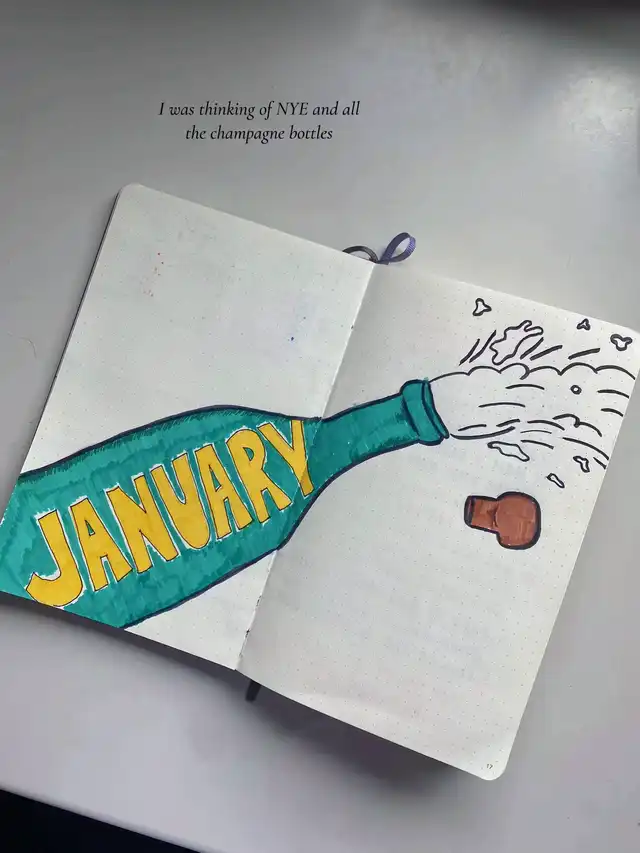 I was thinking of NYE and all
the champagne bottles
JANUARY
17